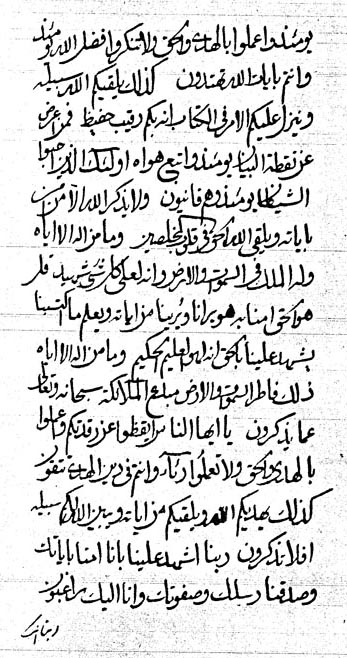 يومئذ واعملوا بالهدى والحق ولا تنكروا فضل الله يومئذ
وانتم بايات الله تهتدون كذلك يلقيكم الله سبيله
وينزل عليكم الامر في الكتاب انه بكم رقيب حفيظ فمن اعرض
عن نقطة البيان يومئذ واتبع هواه اولئك الذين
الشيطان يومئذ وهم فانيون ولا يذكر الله الا من امن
باياته ويلقي الله الحق في قلوب المخلصين وما من اله الا اياه
وله الملك في السموات والارض وانه لعلى كل شيء شهيد قل
هو الحق امنا به هو يرانا ويرينا من اياته ويعلم ما اكتسبنا
يشهد علينا بالحق انه لهو العليم الحكيم وما من اله الا اياه
ذلك فاطر السموات والارض مبدع الملائكة سبحانه وتعالى
عما يذكرون يا ايها الناس ايقظوا عن رقدتكم واعملوا
بالهدى والحق ولا تعملوا رئاء وانتم في دين الهدى تتقون
كذلك يهديكم الله ويلقيكم من اياته ويبين الامر سبيله
افلا تذكرون ربنا اشهد علينا بانا امنا باياتك
وصدقنا رسلك وصفوتك وانا اليك راغبون
ربنا انك